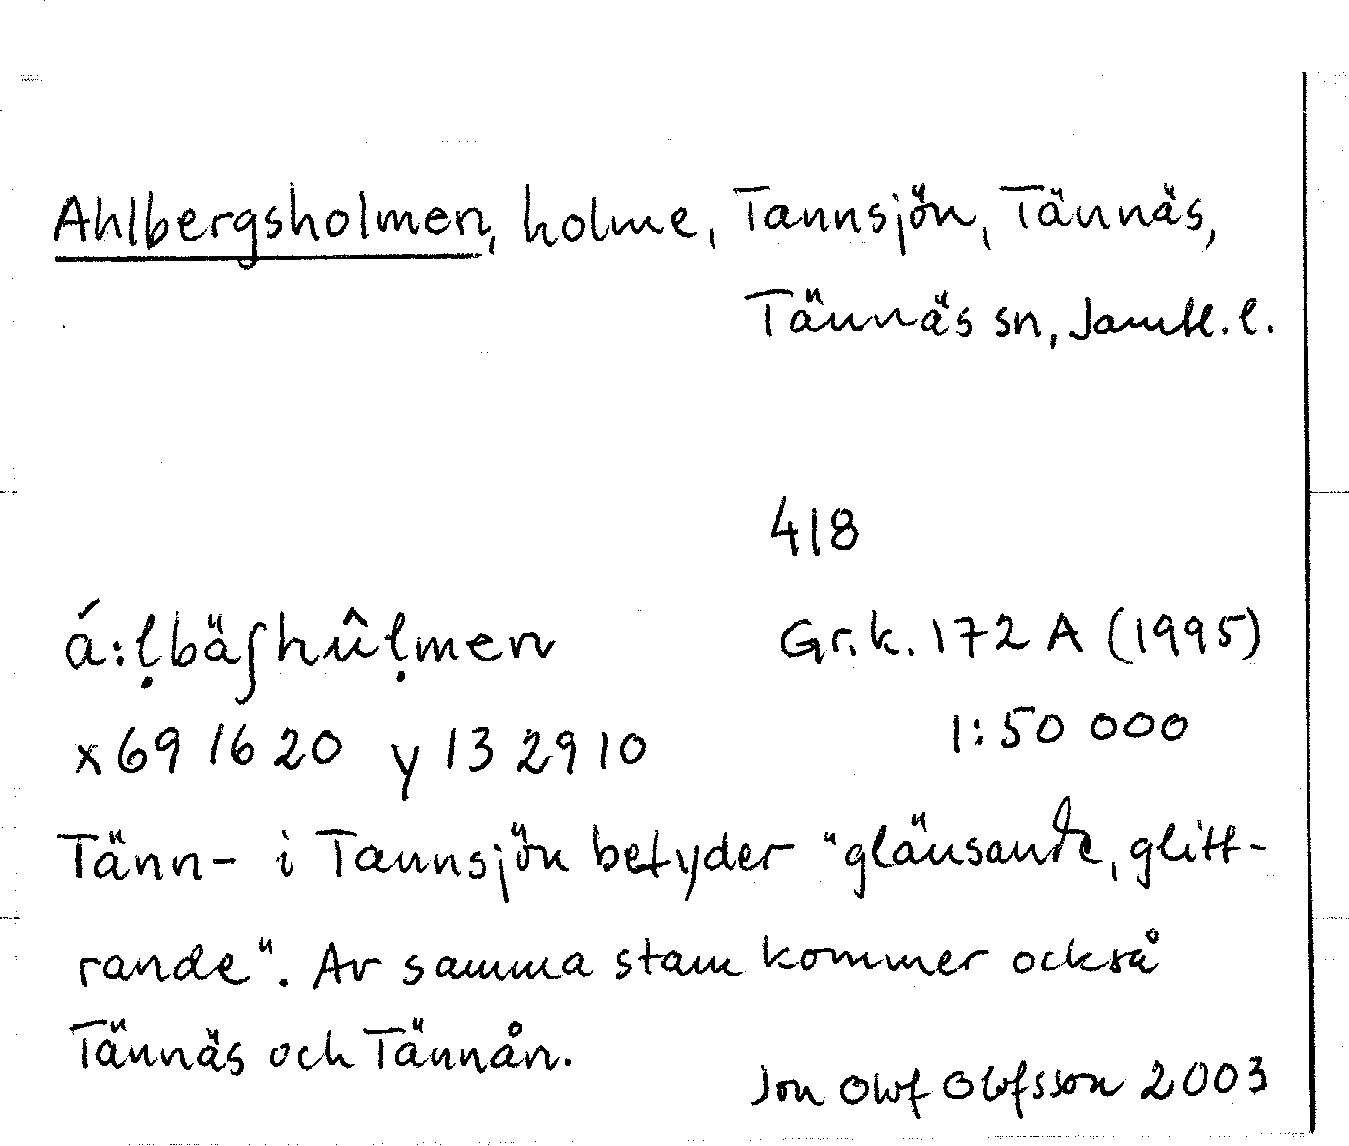 Ahlbergsholmen, holme, Tannsjön, Tännäs,
Tännäs sn, Jämtl. l.
418
á:ḷbäʃhûḷmen
Gr.k. 172 A (1995)
x 69 16 20 y 13 29 10
1:50 000
Tänn- i Tannsjön betyder "glänsande, glitt-
rande". Av samma stam kommer också
Tännäs och Tännån.
Jon Olof Olofsson 2003